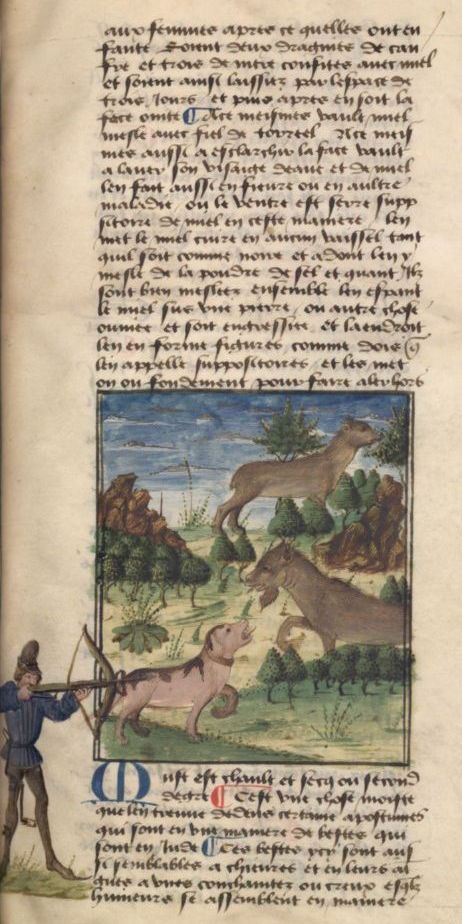 aux femmes apres ce quelles ont en
fante Soient deux dragmes de can
fre et trois de nitre confites avec miel
et soient ainsi laissiez par lespace de
trois Jours et puis apres en soit la
face ointe A ce meismes vault miel
mesle avec fiel de torreel A ce meis
mes aussi a esclarchir la face vault
a laver son visaige deaue et de miel
len fait aussi en fievre ou en aultre
maladie ou le ventre est serre supp
sitoire de miel en ceste maniere len
met le miel cuire en aucun vaissel tant
quil soit comme noire et adont len y
mesle de la poudre de sel et quant Ilz
sont bien meslees ensemble len espant
le miel sus une pierre ou autre chose
ouniee et soit engressie et la endroit
len en forme figures comme dois q
len appelle suppositoires et les met
on ou fondement pour faire aler hors
Must est chault et secq ou second
degre Cest une chose moiste
que len treuve dedens certaine apostumes
qui sont en une maniere de bestes qui
sont en Inde Ces bestes ycy sont aus
si semblables a chievres et en leurs
a unes ou creux esqlz
humeurs se assemblent en maniere